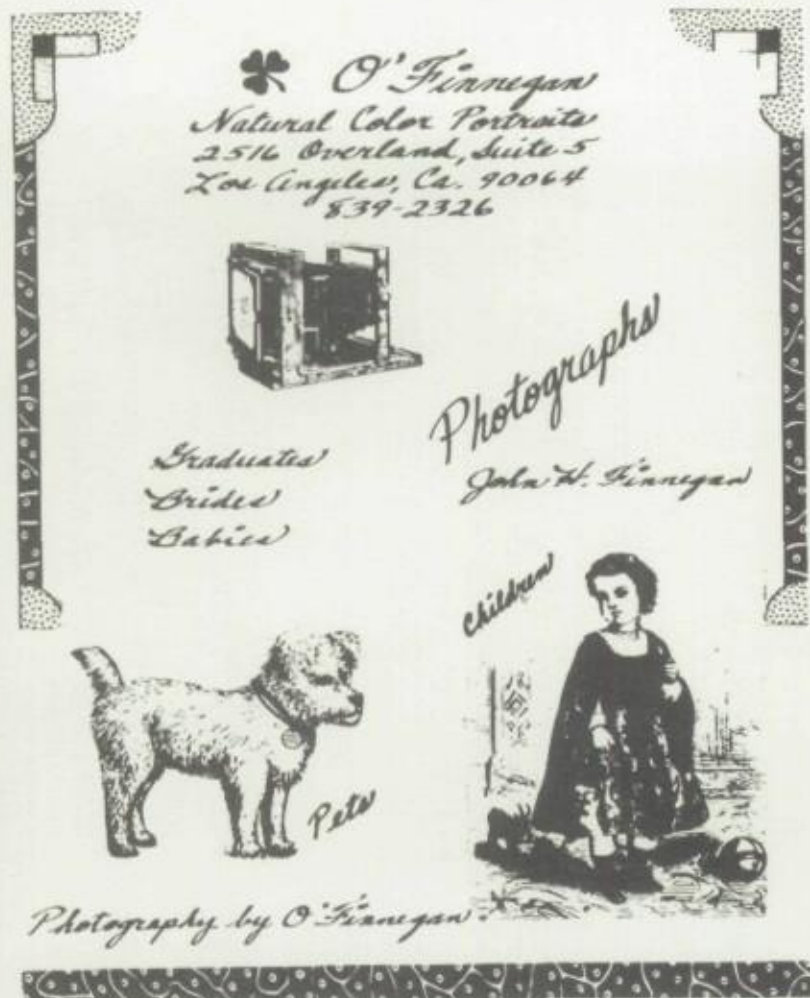 O'Finnegan
Natural Color Portraits
2516 Overland, Suite 5
Los Angeles, Ca. 90064
839-2326
Photographs
John H. Finnegan
Graduates
Brides
Babies
Children
Pets
Photography by O'Finnegan.